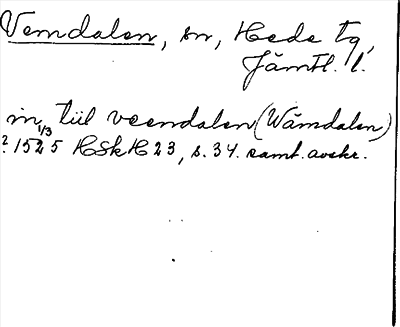 Vemdalen, sn, Hede tg,
Jämtl. l.
in till veendalen (Wämdalen)
1/3
? 1525 HSkH 23, s. 34. samt. avskr.